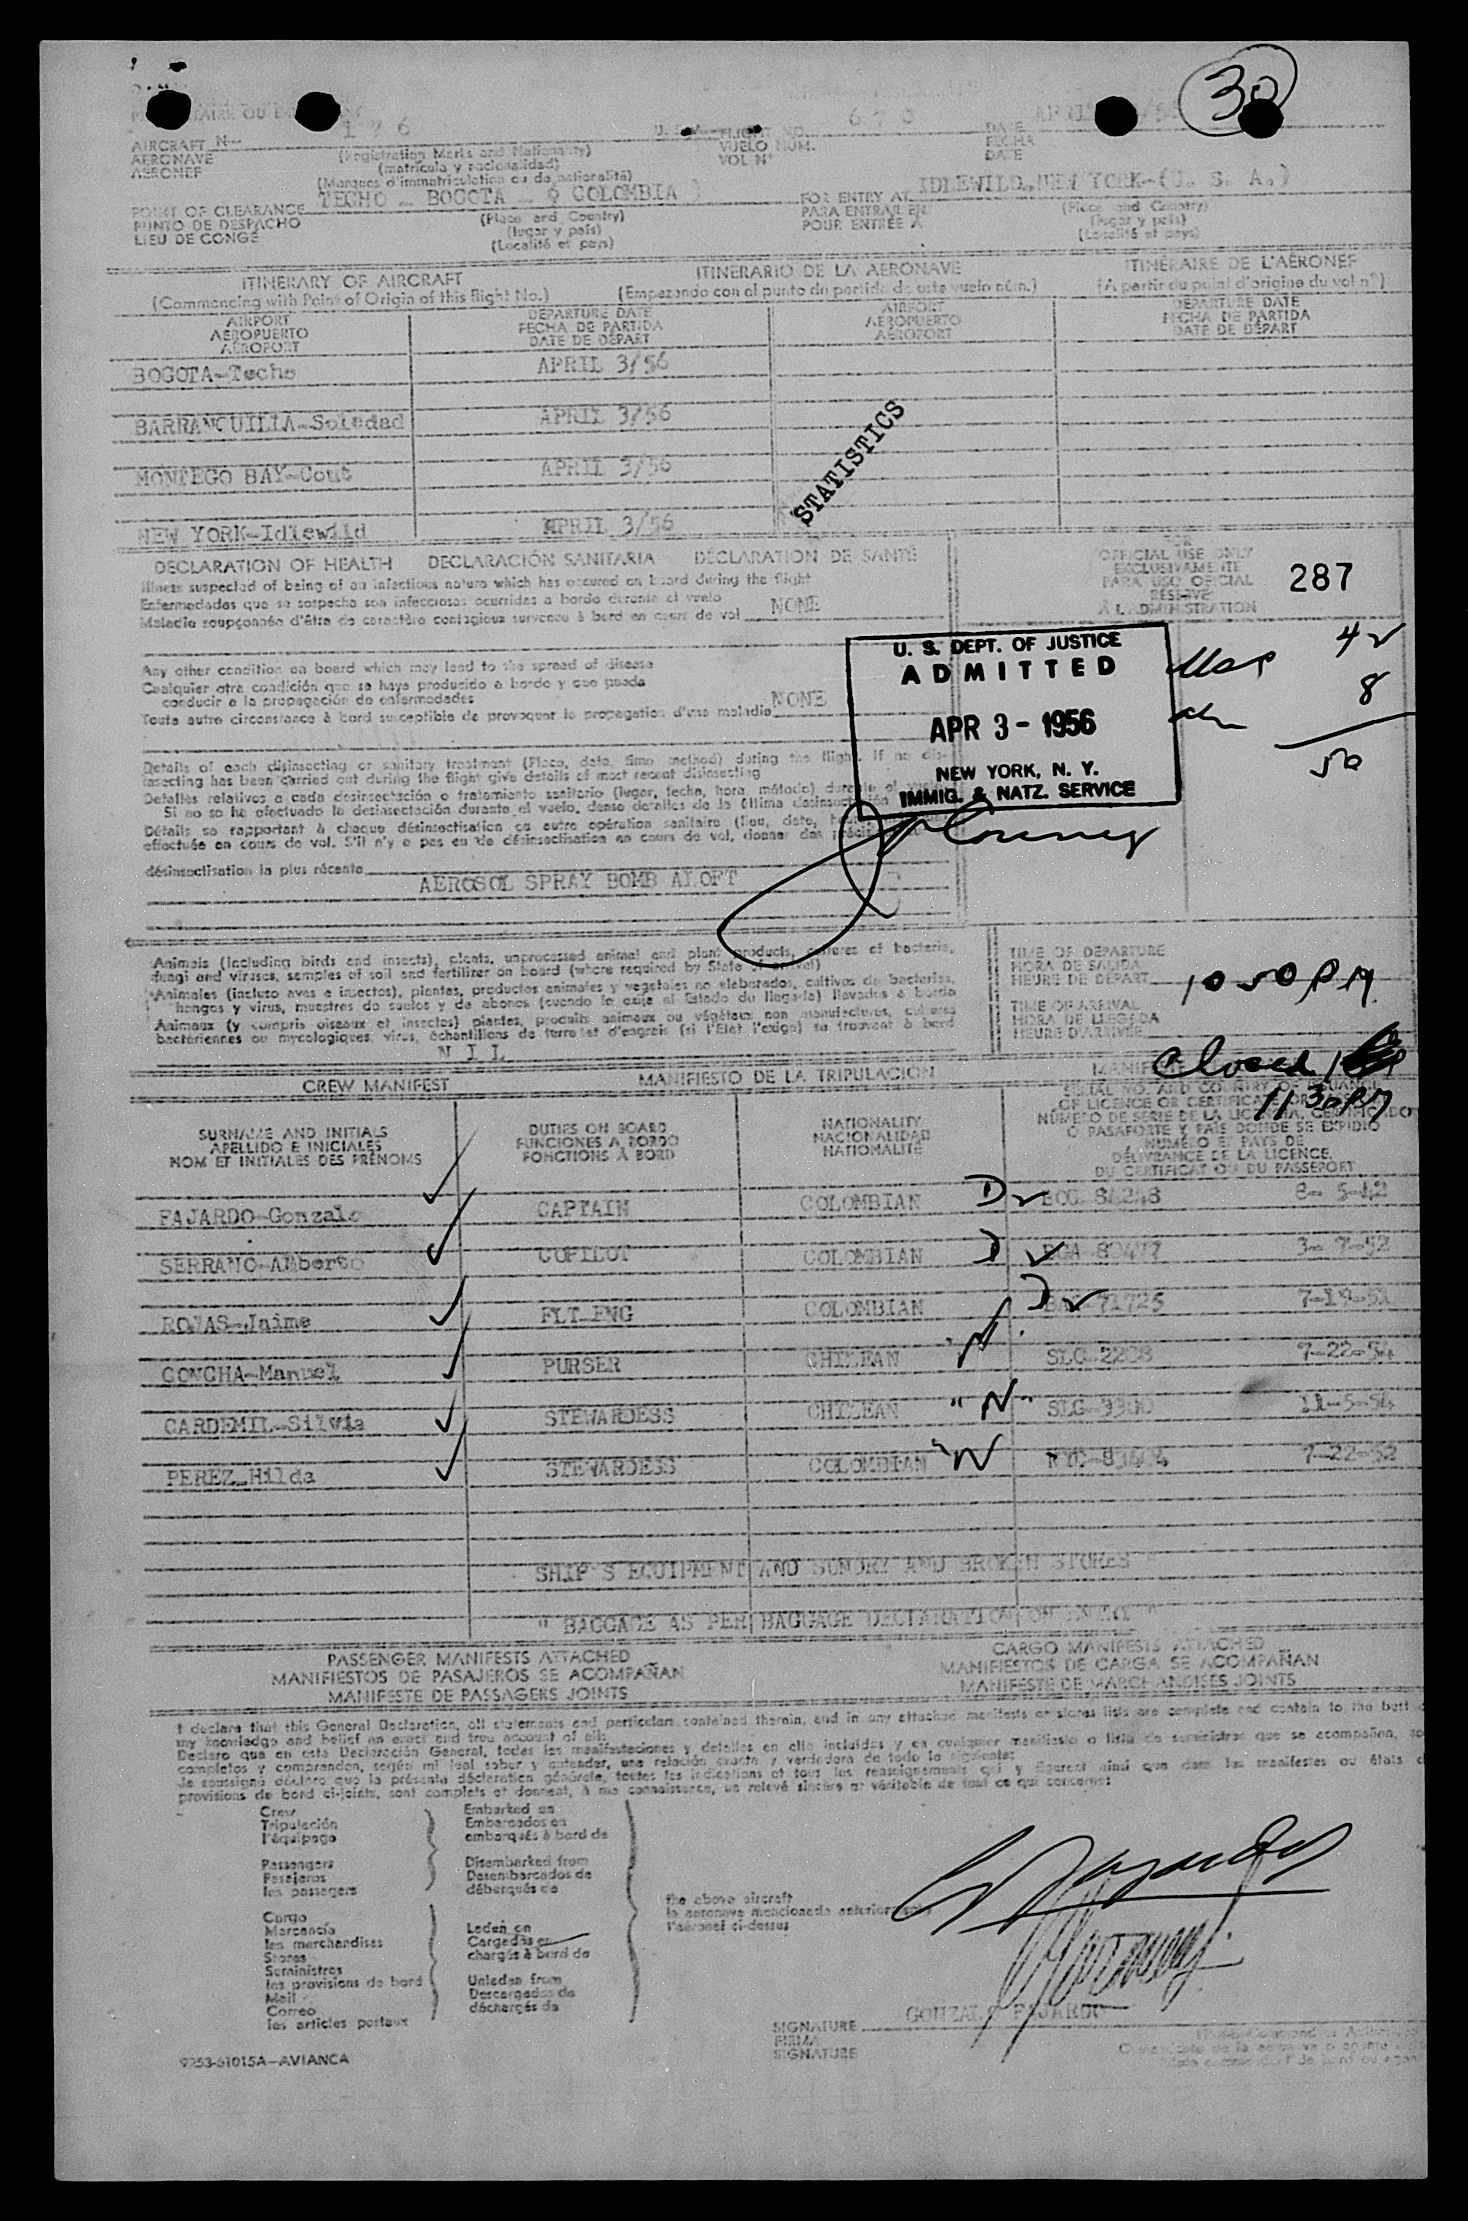 30
AIRCRAFT N
AERONAVE
AERONEF
(Registration Marks and Nationality)
(matrícula y nacionalidad)
(Marques d'immatriculation ou de nationalité)
FLIGHT NO.
VUELO NUM.
VOL Nº
DATE
FECHA
DATE
POINT OF CLEARANCE TECHO - BOGOTA - ( COLOMBIA )
PUNTO DE DESPACHO
LIEU DE CONGÉ
(Place and Country)
(lugar y país)
(Localité et pays)
FOR ENTRY AT IDLEWILD, NEW YORK-(U. S. A.)
PARA ENTRAR EN
POUR ENTRÉE A
(Place and Country)
(lugar y país)
(Localité et pays)
ITINERARY OF AIRCRAFT ITINERARIO DE LA AERONAVE ITINÉRAIRE DE L'AÉRONEF
(Commencing with Point of Origin of this flight No.) (Empezando con el punto de partida de este vuelo núm.) (A partir du point d'origine du vol nº)
AIRPORT DEPARTURE DATE AIRPORT DEPARTURE DATE
AEROPUERTO FECHA DE PARTIDA AEROPUERTO FECHA DE PARTIDA
AÉROPORT DATE DE DÉPART AÉROPORT DATE DE DÉPART
BOGOTA-Techo APRIL 3/56
BARRANQUILLA-Soledad APRIL 3/56
MONTEGO BAY-Cout APRIL 3/56
NEW YORK-Idlewild APRIL 3/56
STATISTICS
DECLARATION OF HEALTH DECLARACIÓN SANITARIA DÉCLARATION DE SANTÉ
Illness suspected of being of an infectious nature which has occured on board during the flight
Enfermedades que se sospecha son infecciosas ocurridas a bordo durante el vuelo
Maladie soupçonnée d'être de caractère contagieux survenue à bord en cours de vol NONE
FOR
OFFICIAL USE ONLY
EXCLUSIVAMENTE
PARA USO OFICIAL
RÉSERVÉ
À L'ADMINISTRATION
287
Any other condition on board which may lead to the spread of disease
Cualquier otra condición que se haya producido a bordo y que pueda
conducir a la propagación de enfermedades
Toute autre circonstance à bord susceptible de provoquer la propagation d'une maladie NONE
U. S. DEPT. OF JUSTICE
ADMITTED
APR 3 - 1956
NEW YORK, N. Y.
IMMIG. & NATZ. SERVICE
42
8
50
Details of each disinsecting or sanitary treatment (Place, date, time method) during the flight. If no dis-
insecting has been carried out during the flight give details of most recent disinsecting
Detalles relativos a cada desinsectación o tratamiento sanitario (lugar, fecha, hora, método) durante el
Si no se ha efectuado la desinsectación durante el vuelo, dense detalles de la última desinsectación
Détails se rapportant à chaque désinsectisation ou autre opération sanitaire (lieu, date,
effectuée en cours de vol. S'il n'y a pas eu de désinsectisation en cours de vol, donner des
désinsectisation la plus récente
AEROSOL SPRAY BOMB ALOFT
Animals (including birds and insects), plants, unprocessed animal and plant products, cultures of bacteria,
fungi and viruses, samples of soil and fertilizer on board (where required by State of arrival)
Animales (incluso aves e insectos), plantas, productos animales y vegetales no elaborados, cultivos de bacterias,
hongos y virus, muestras de suelos y de abonos (cuando lo exija el Estado de llegada) llevados a bordo
Animaux (y compris oiseaux et insectes) plantes, produits animaux ou végétaux non manufacturés, cultures
bactériennes ou mycologiques, virus, échantillons de terre et d'engrais (si l'Etat l'exige) se trouvant à bord
NIL
TIME OF DEPARTURE
HORA DE SALIDA
HEURE DE DÉPART
1050PM
TIME OF ARRIVAL
HORA DE LLEGADA
HEURE D'ARRIVÉE
Closed
1130PM
CREW MANIFEST MANIFIESTO DE LA TRIPULACIÓN
SURNAME AND INITIALS DUTIES ON BOARD NATIONALITY
APELLIDO E INICIALES FUNCIONES A BORDO NACIONALIDAD
NOM ET INITIALES DES PRÉNOMS FONCTIONS À BORD NATIONALITÉ
SERIAL NO. AND COUNTRY OF ISSUANCE
OF LICENCE OR CERTIFICATE OR
NÚMERO DE SERIE DE LA LICENCIA, CERTIFICADO
O PASAPORTE Y PAÍS DONDE SE EXPIDIÓ
NUMÉRO ET PAYS DE
DÉLIVRANCE DE LA LICENCE,
DU CERTIFICAT OU DU PASSEPORT
FAJARDO-Gonzalo CAPTAIN COLOMBIAN D 8- 5-42
SERRANO-Alberto COPILOT COLOMBIAN D 3- 7-52
ROJAS-Jaime FLT-ENG COLOMBIAN D 7-19-51
CONCHA-Manuel PURSER CHILEAN N 9-22-54
CARDEMIL-Silvia STEWARDESS CHILEAN "N" 11-5-54
PEREZ-Hilda STEWARDESS COLOMBIAN "N 7-22-52
SHIP'S EQUIPMENT AND SUNDRY AND BROKEN STORES "
" BAGGAGE AS PER BAGGAGE DECLARATION ON ENTRY "
PASSENGER MANIFESTS ATTACHED CARGO MANIFESTS ATTACHED
MANIFIESTOS DE PASAJEROS SE ACOMPAÑAN MANIFIESTOS DE CARGA SE ACOMPAÑAN
MANIFESTE DE PASSAGERS JOINTS MANIFESTE DE MARCHANDISES JOINTS
I declare that this General Declaration, all statements and particulars contained therein, and in any attached manifests or stores lists are complete and contain to the best
my knowledge and belief an exact and true account of all:
Declaro que en esta Declaración General, todas las manifestaciones y detalles en ella incluidas y en cualquier manifiesto o lista de suministros que se acompañan,
completos y comprenden, según mi leal saber y entender, una relación exacta y verdadera de todo lo siguiente:
Je soussigné déclare que la présente déclaration générale, toutes les indications et tous les renseignements qui y figurent ainsi que dans les manifestes ou états
provisions de bord ci-joints, sont complets et donnent, à ma connaissance, un relevé sincère et véritable de tout ce qui concerne:
Crew Embarked on
Tripulación Embarcados en
l'équipage embarqués à bord de
Passengers Disembarked from
Pasajeros Desembarcados de
les passagers débarqués de
the above aircraft
la aeronave mencionada anteriormente
l'aéronef ci-dessus
Cargo
Mercancía Laden on
les marchandises Cargadas en
Stores chargés à bord de
Suministros
les provisions de bord Unladen from
Mail Descargados de
Correo déchargés de
les articles postaux
GONZALO FAJARDO
SIGNATURE
FIRMA
SIGNATURE
9253-61015A-AVIANCA